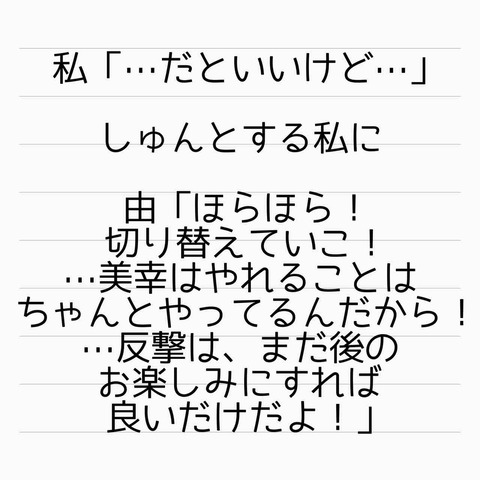 私「…だといいけど…」
しゅんとする私に
由「ほらほら！
切り替えていこ！
…美幸はやれることは
ちゃんとやってるんだから！
…反撃は、まだ後の
お楽しみにすれば
良いだけだよ！」